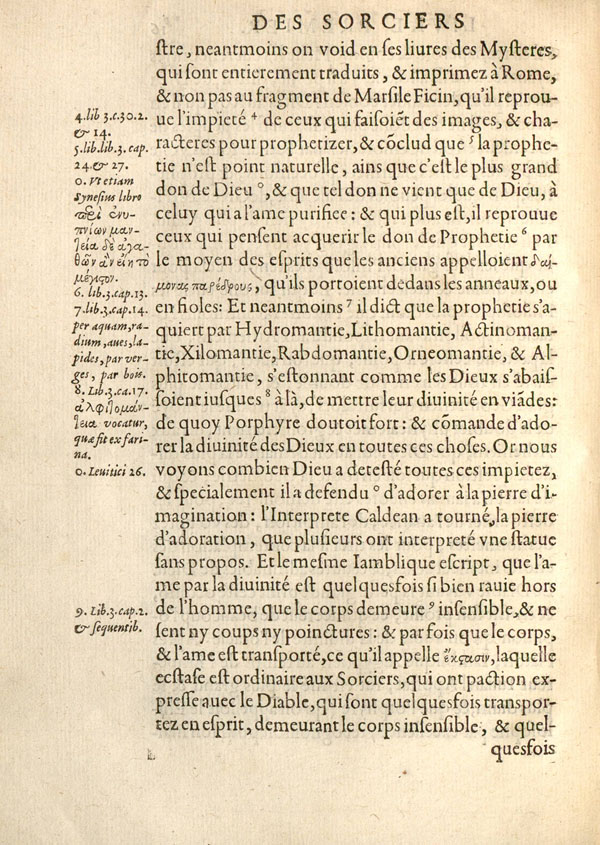 DES SORCIERS
ſtre, neantmoins on void en ſes liures des Myſteres,
qui ſont entierement traduits, & imprimez à Rome,
& non pas au fragment de Marſile Ficin, qu'il reprou-
ue l'impieté ⁴ de ceux qui faiſoiẽt des images, & cha-
racteres pour prophetizer, & cõclud que ⁵ la prophe-
tie n'eſt point naturelle, ains que c'eſt le plus grand
don de Dieu °, & que tel don ne vient que de Dieu, à
celuy qui a l'ame purifiee: & qui plus eſt, il reprouue
ceux qui penſent acquerir le don de Prophetie ⁶ par
le moyen des eſprits que les anciens appelloient δαί-
μονας παρέδρους, qu'ils portoient dedans les anneaux, ou
en fioles: Et neantmoins ⁷ il dict que la prophetie s'a-
quiert par Hydromantie, Lithomantie, Actinoman-
tie, Xilomantie, Rabdomantie, Orneomantie, & Al-
phitomantie, s'eſtonnant comme les Dieux s'abaiſ-
ſoient iuſques ⁸ à là, de mettre leur diuinité en viãdes:
de quoy Porphyre doutoit fort: & cõmande d'ado-
rer la diuinité des Dieux en toutes ces choſes. Or nous
voyons combien Dieu a deteſté toutes ces impietez,
& ſpecialement il a defendu ° d'adorer à la pierre d'i-
magination: l'Interprete Caldean a tourné, la pierre
d'adoration, que pluſieurs ont interpreté vne ſtatue
ſans propos. Et le meſme Iamblique eſcript, que l'a-
me par la diuinité eſt quelquesfois ſi bien rauie hors
de l'homme, que le corps demeure ⁹ inſenſible, & ne
ſent ny coups ny poinctures: & par fois que le corps,
& l'ame eſt tranſporté, ce qu'il appelle ἔκςασιν, laquelle
ecſtaſe eſt ordinaire aux Sorciers, qui ont paction ex-
preſſe auec le Diable, qui ſont quelquesfois tranſpor-
tez en eſprit, demeurant le corps inſenſible, & quel-
quesfois
4. lib 3. c. 30. 2.
& 14.
5. lib. lib. 3. cap.
24 & 27.
0. Vt etiam
Syneſius libro
περὶ ἐνυ-
πνίων μαν-
τεία δὲ ἀγα-
θῶν ἂν εἴη τὸ
μέγιςον.
6. lib. 3. cap. 13.
7. lib. 3. cap. 14
per aquam, ra-
dium, aues, la-
pides, par ver-
ges, par bois.
8. Lib. 3. ca. 17.
ἀλφιτομάν-
τεια vocatur,
quæ fit ex fari-
na.
0. Leuitici 26.
9. Lib. 3. cap. 2.
& ſequentib.